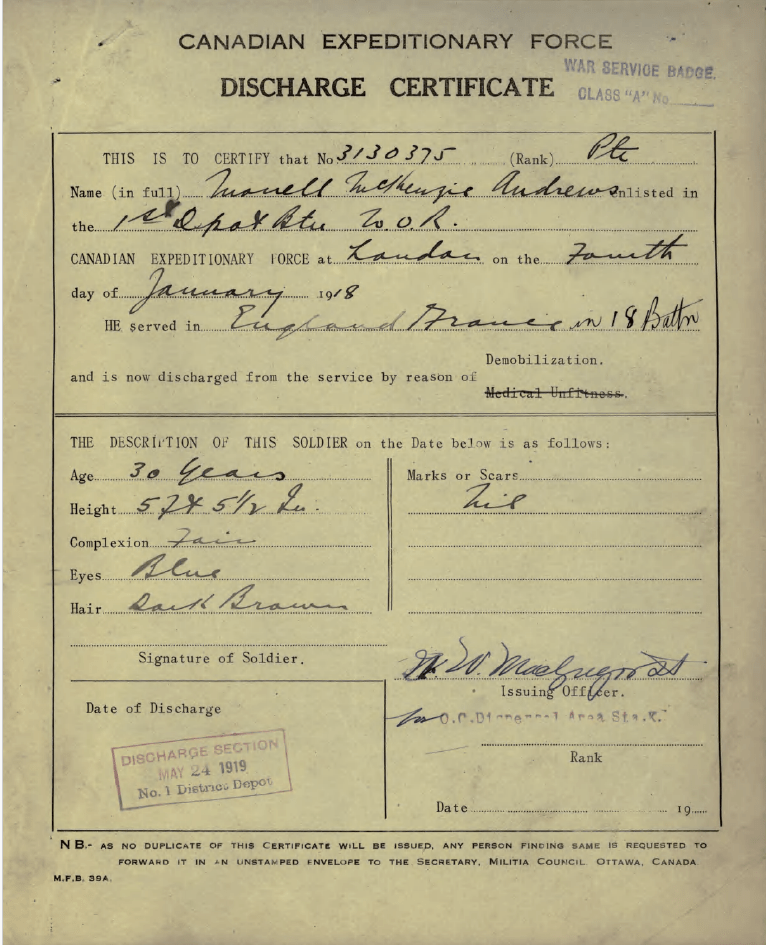 CANADIAN EXPEDITIONARY FORCE
WAR SERVICE BADGE.
DISCHARGE CERTIFICATE
CLASS "A" No
THIS IS TO CERTIFY that No. 3130375 (Rank) Pte
Name (in full) McKenzie Andrews enlisted in
the 1st Depot Btn W.O.R.
CANADIAN EXPEDITIONARY FORCE at London on the Fourth
day of January 1918
HE served in England France in 18 Battn
Demobilization.
and is now discharged from the service by reason of
Medical Unfitness.
THE DESCRIPTION OF THIS SOLDIER on the Date below is as follows:
Age 30 Years
Height 5 Ft 5 1/2 In.
Complexion Fair
Eyes Blue
Hair Dark Brown
Marks or Scars
Nil
Signature of Soldier.
Issuing Officer.
for O.C. Dispersal Area Sta. K.
Rank
Date 19
Date of Discharge
DISCHARGE SECTION
MAY 24 1919
No. 1 District Depot
NB.- AS NO DUPLICATE OF THIS CERTIFICATE WILL BE ISSUED, ANY PERSON FINDING SAME IS REQUESTED TO
FORWARD IT IN AN UNSTAMPED ENVELOPE TO THE SECRETARY, MILITIA COUNCIL OTTAWA, CANADA
M.F.B. 39A.